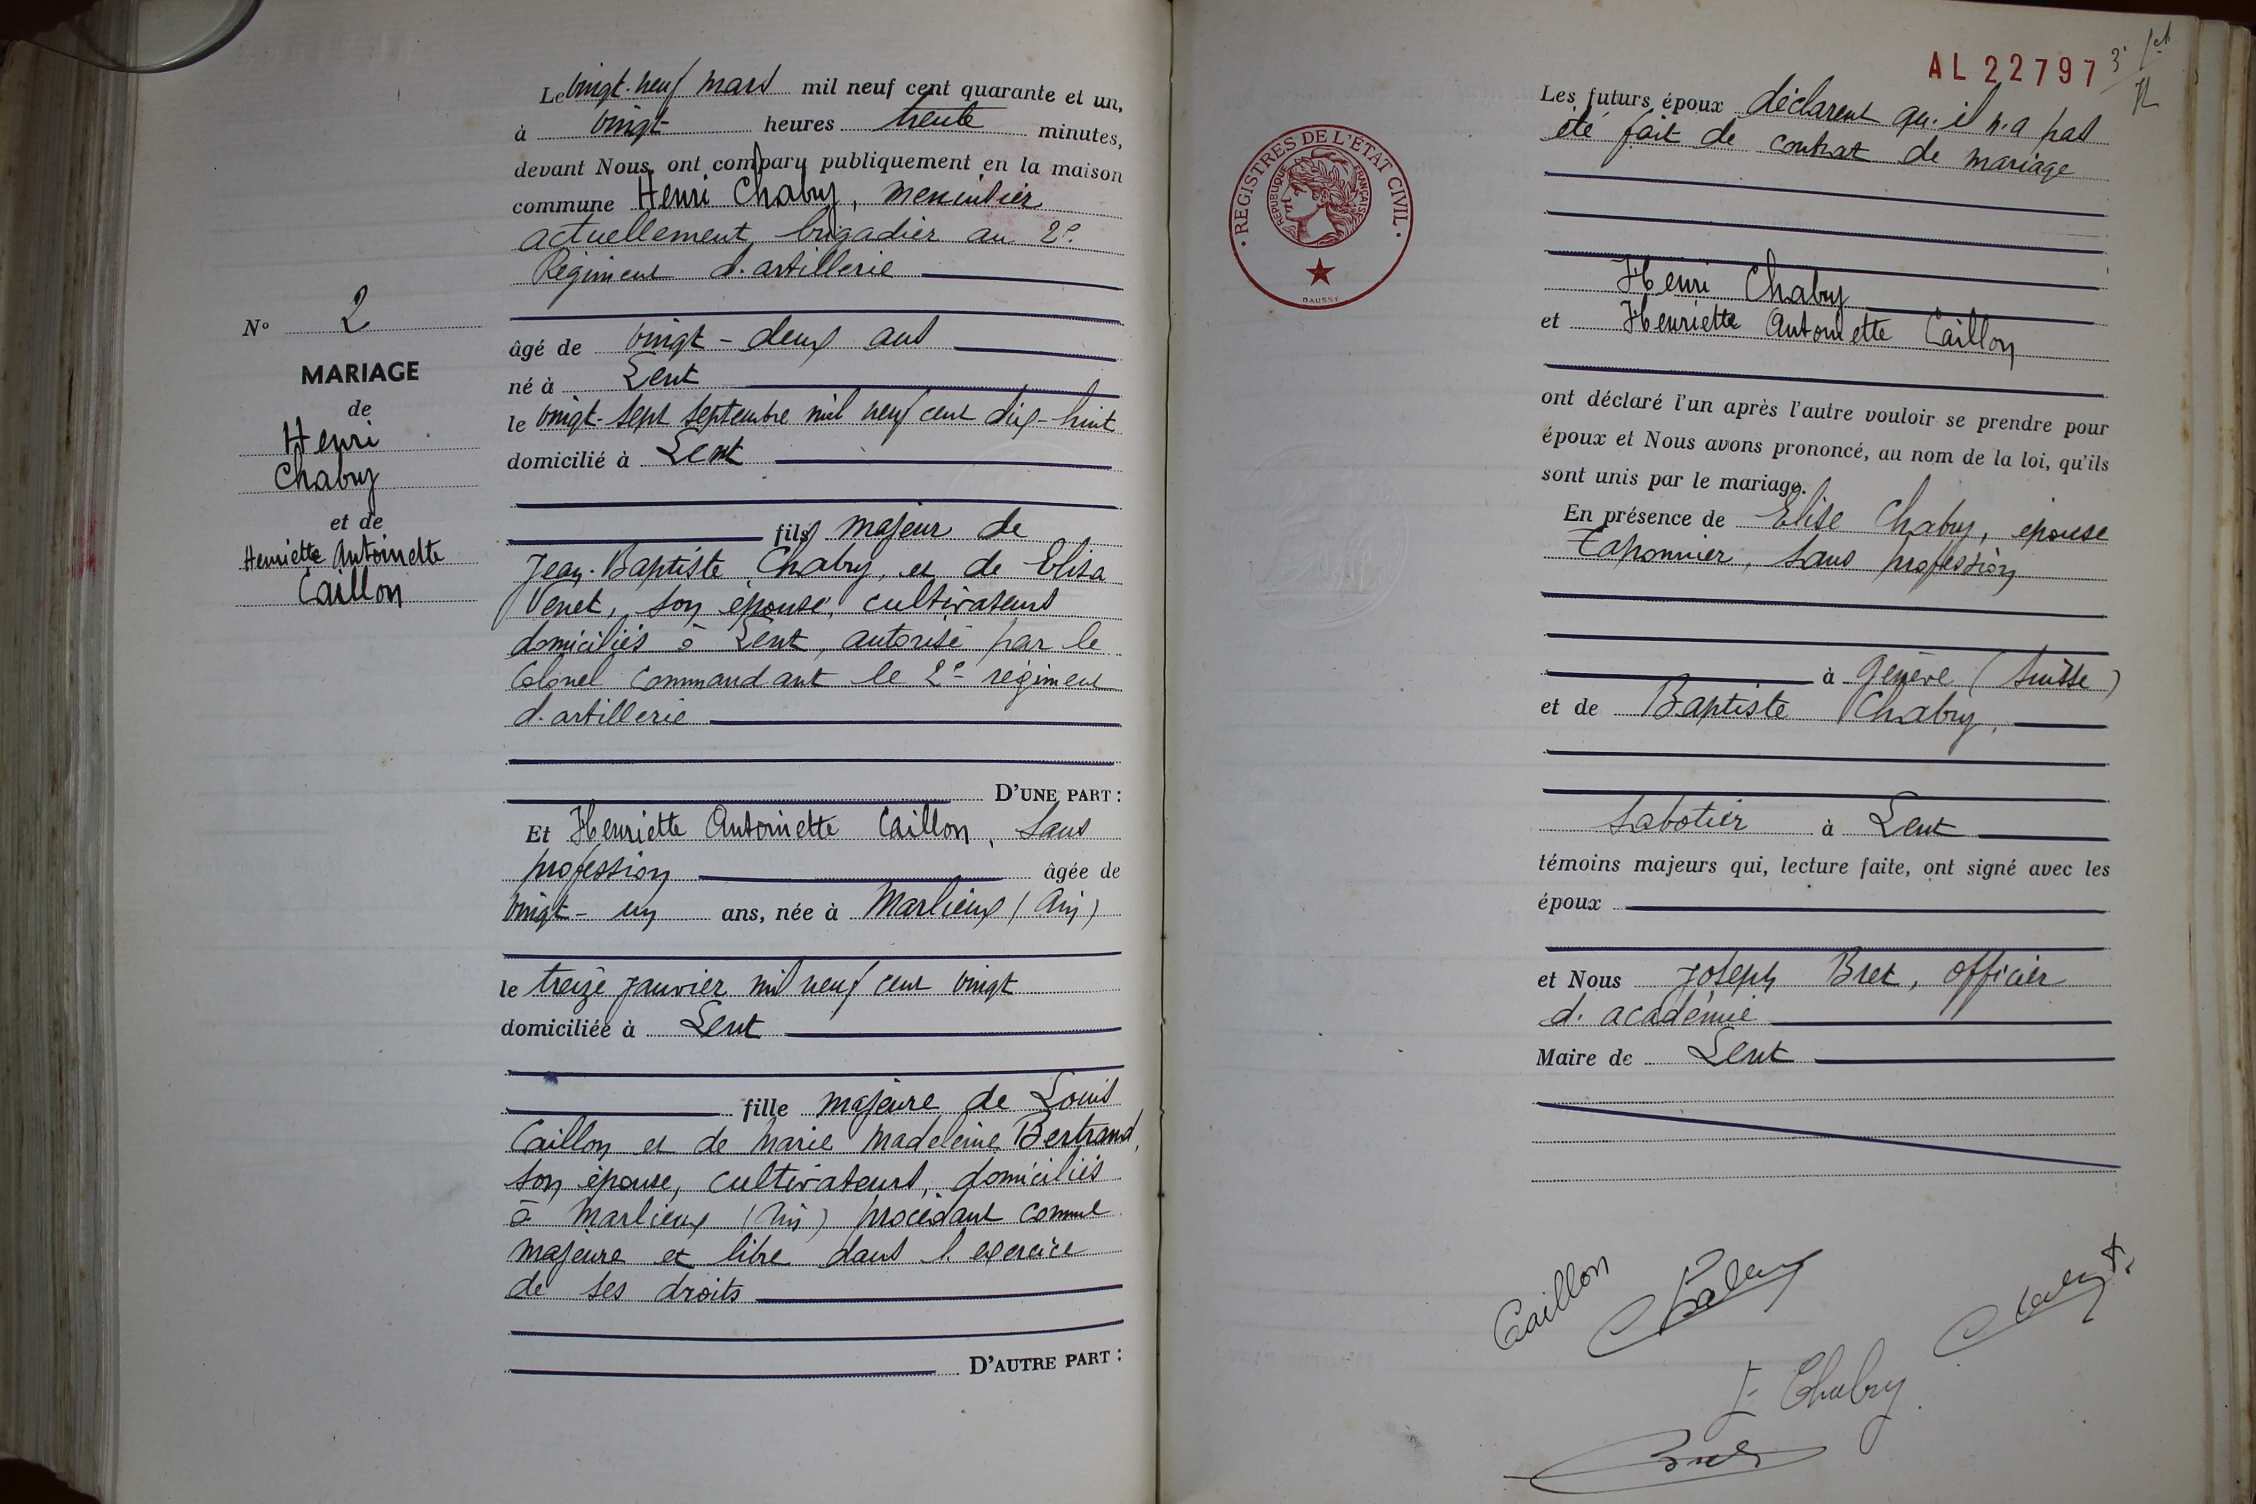 Le vingt-neuf mars mil neuf cent quarante et un,
à vingt heures trente minutes,
devant Nous, ont comparu publiquement en la maison
commune Henri Chabry, menuisier
actuellement brigadier au 2e
Régiment d'artillerie
âgé de vingt-deux ans
né à Lent
le vingt-sept septembre mil neuf cent dix-huit
domicilié à Lent
fils majeur de
Jean-Baptiste Chabry, et de Elisa
Venet, son épouse, cultivateurs
domiciliés à Lent, autorisé par le
Colonel Commandant le 2e régiment
d'artillerie
D'UNE PART :
Et Henriette Antoinette Caillon, sans
profession âgée de
vingt-un ans, née à Marlieux (Ain)
le treize janvier mil neuf cent vingt
domiciliée à Lent
fille majeure de Louis
Caillon et de Marie Madeleine Bertrand,
son épouse, cultivateurs, domiciliés
à Marlieux (Ain) procédant comme
majeure et libre dans l'exercice
de ses droits
D'AUTRE PART :
N° 2
MARIAGE
de
Henri
Chabry
et de
Henriette Antoinette
Caillon
AL 22797
REGISTRES DE L'ÉTAT CIVIL
REPUBLIQUE FRANÇAISE
DAUSSY
Les futurs époux déclarent qu'il n'a pas
été fait de contrat de mariage
Henri Chabry
et Henriette Antoinette Caillon
ont déclaré l'un après l'autre vouloir se prendre pour
époux et Nous avons prononcé, au nom de la loi, qu'ils
sont unis par le mariage.
En présence de Elise Chabry, épouse
Taponnier, sans profession
à Genève (Suisse)
et de Baptiste Chabry,
sabotier à Lent
témoins majeurs qui, lecture faite, ont signé avec les
époux
et Nous Joseph Bret, officier
d'académie
Maire de Lent
Caillon
Chabry
Chabry
E Chabry
Bret